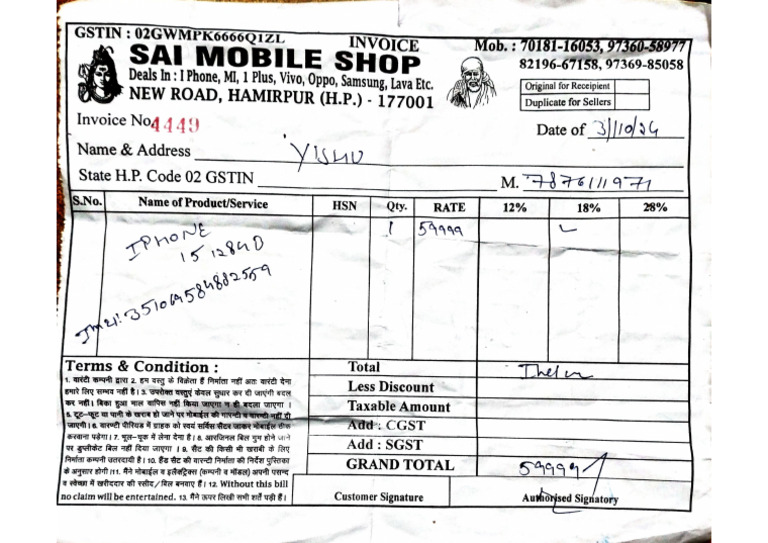 GSTIN : 02GWMPK6666Q1ZL
INVOICE
Mob. : 70181-16053, 97360-58977
SAI MOBILE SHOP
82196-67158, 97369-85058
Deals In : I Phone, MI, 1 Plus, Vivo, Oppo, Samsung, Lava Etc.
Original for Receipient
NEW ROAD, HAMIRPUR (H.P.) - 177001
Duplicate for Sellers
Invoice No. 4449
Date of 3/10/24
Name & Address YISHU
State H.P. Code 02 GSTIN
M. 7876111971
S.No. Name of Product/Service HSN Qty. RATE 12% 18% 28%
IPHONE 1 59999
15 128
351069584882559
Terms & Condition :
Total
1. वारंटी कम्पनी द्वारा 2. हम वस्तु के विक्रेता हैं निर्माता नहीं अतः वारंटी देना
हमारे लिए सम्भव नहीं है। 3. उपरोक्त वस्तुएं केवल सुधार कर दी जाएंगी बदल
Less Discount
कर नहीं। बिका हुआ माल वापिस नहीं किया जाएगा न ही बदला जाएगा ।
Taxable Amount
5. टूट-फूट या पानी के खराब हो जाने पर मोबाईल की गारन्टी व वारन्टी नहीं दी
जाएगी। 6. वारण्टी पीरियड में ग्राहक को स्वयं सर्विस सैंटर जाकर मोबाईल ठीक
Add : CGST
करवाना पड़ेगा। 7. भूल-चूक में लेना देना है। 8. आरजिनल बिल गुम होने जाने
Add : SGST
पर डुप्लीकेट बिल नहीं दिया जाएगा । 9. सैट की किसी भी खराबी के लिए
निर्माता कम्पनी उतरदायी है। 10. हैंड सैट की वारन्टी निर्माता की निर्देश पुस्तिका
GRAND TOTAL 59999/
के अनुसार होगी।11. मैंने मोबाईल व इलैक्ट्रिक्स (कम्पनी व मॉडल) अपनी पसन्द
व स्वेच्छा में खरीददार की रसीद/बिल बनवाए हैं। 12. Without this bill
no claim will be entertained. 13. मैंने ऊपर लिखी सभी शर्तें पढ़ी हैं।
Customer Signature
Authorised Signatory